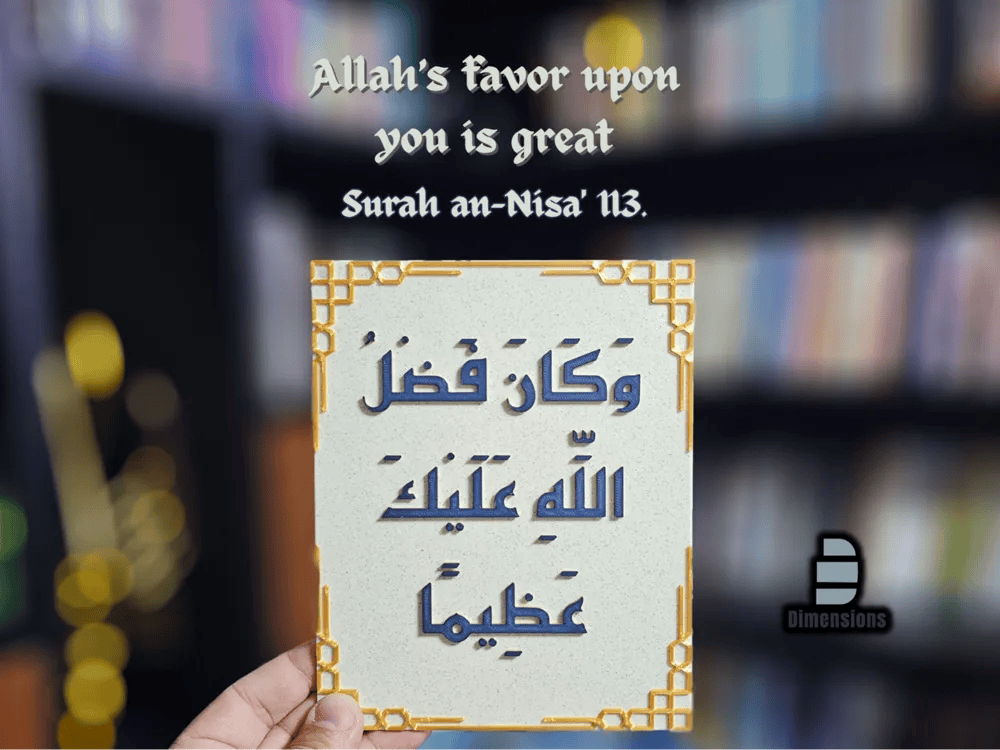 Allah's favor upon
you is great
Surah an-Nisa' 113.
وَكَانَ فَضْلُ
اللَّهِ عَلَيْكَ
عَظِيمًا
Dimensions